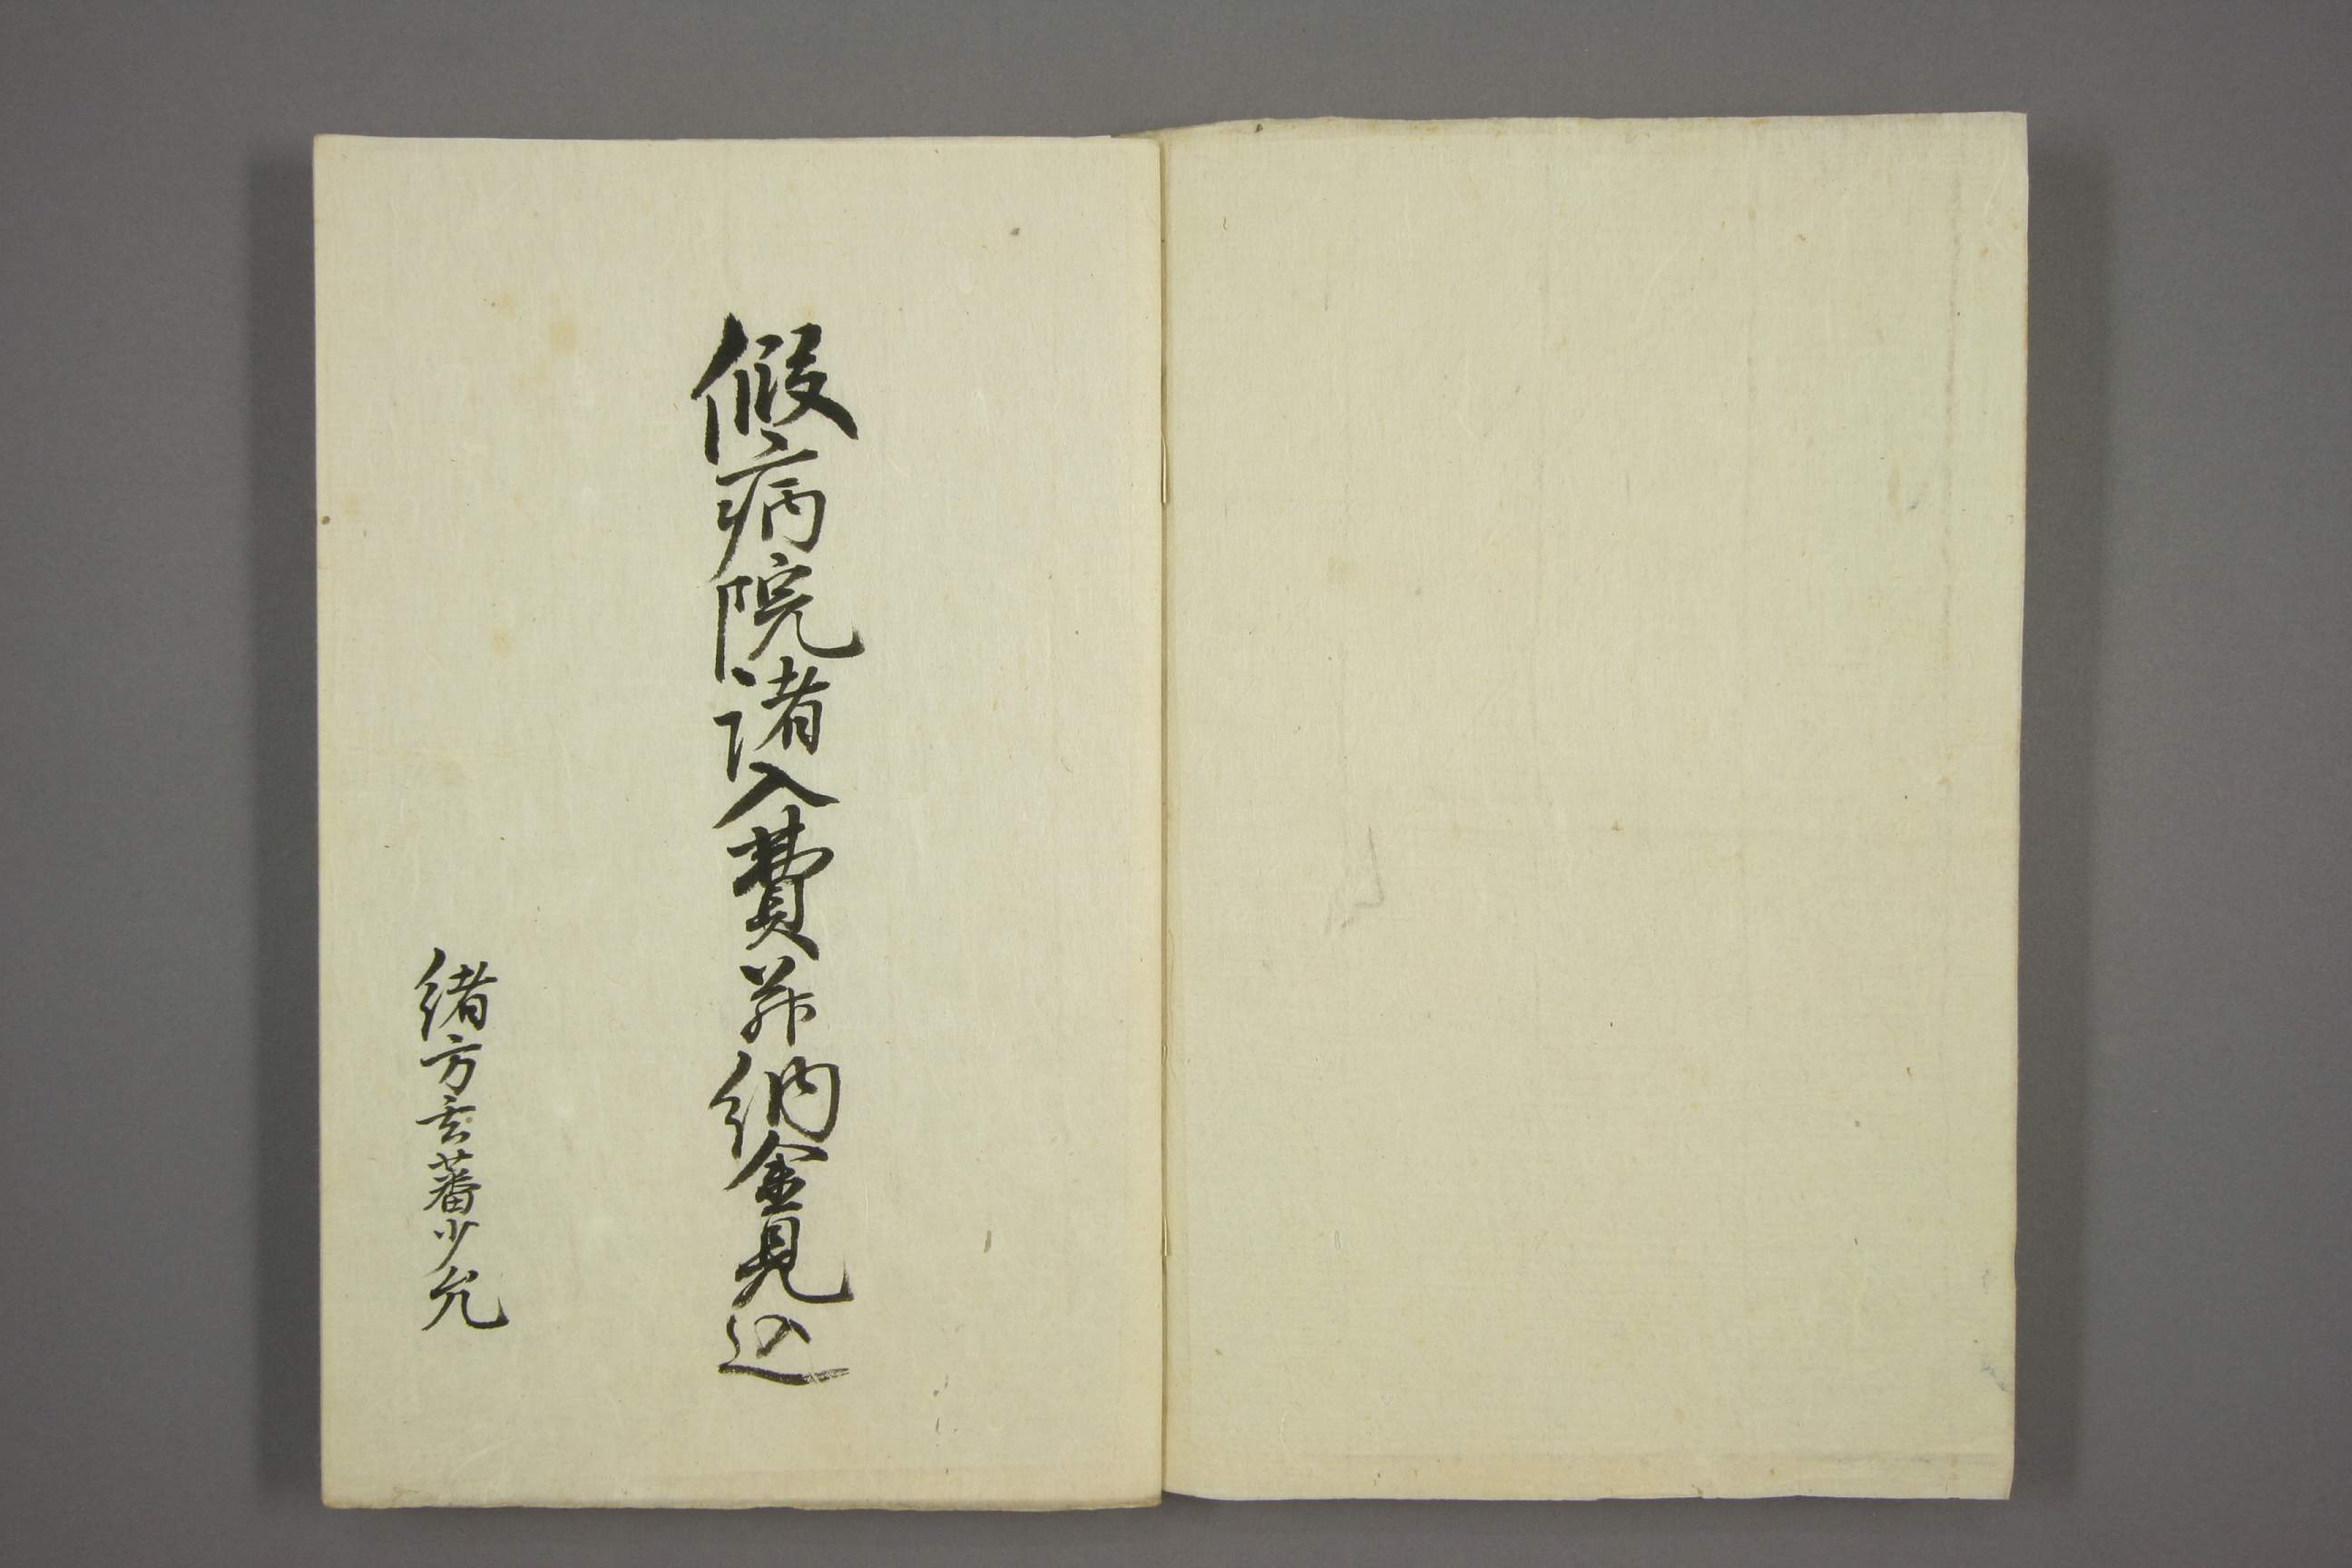 假病院諸入費并納金見込
緒方玄蕃少允